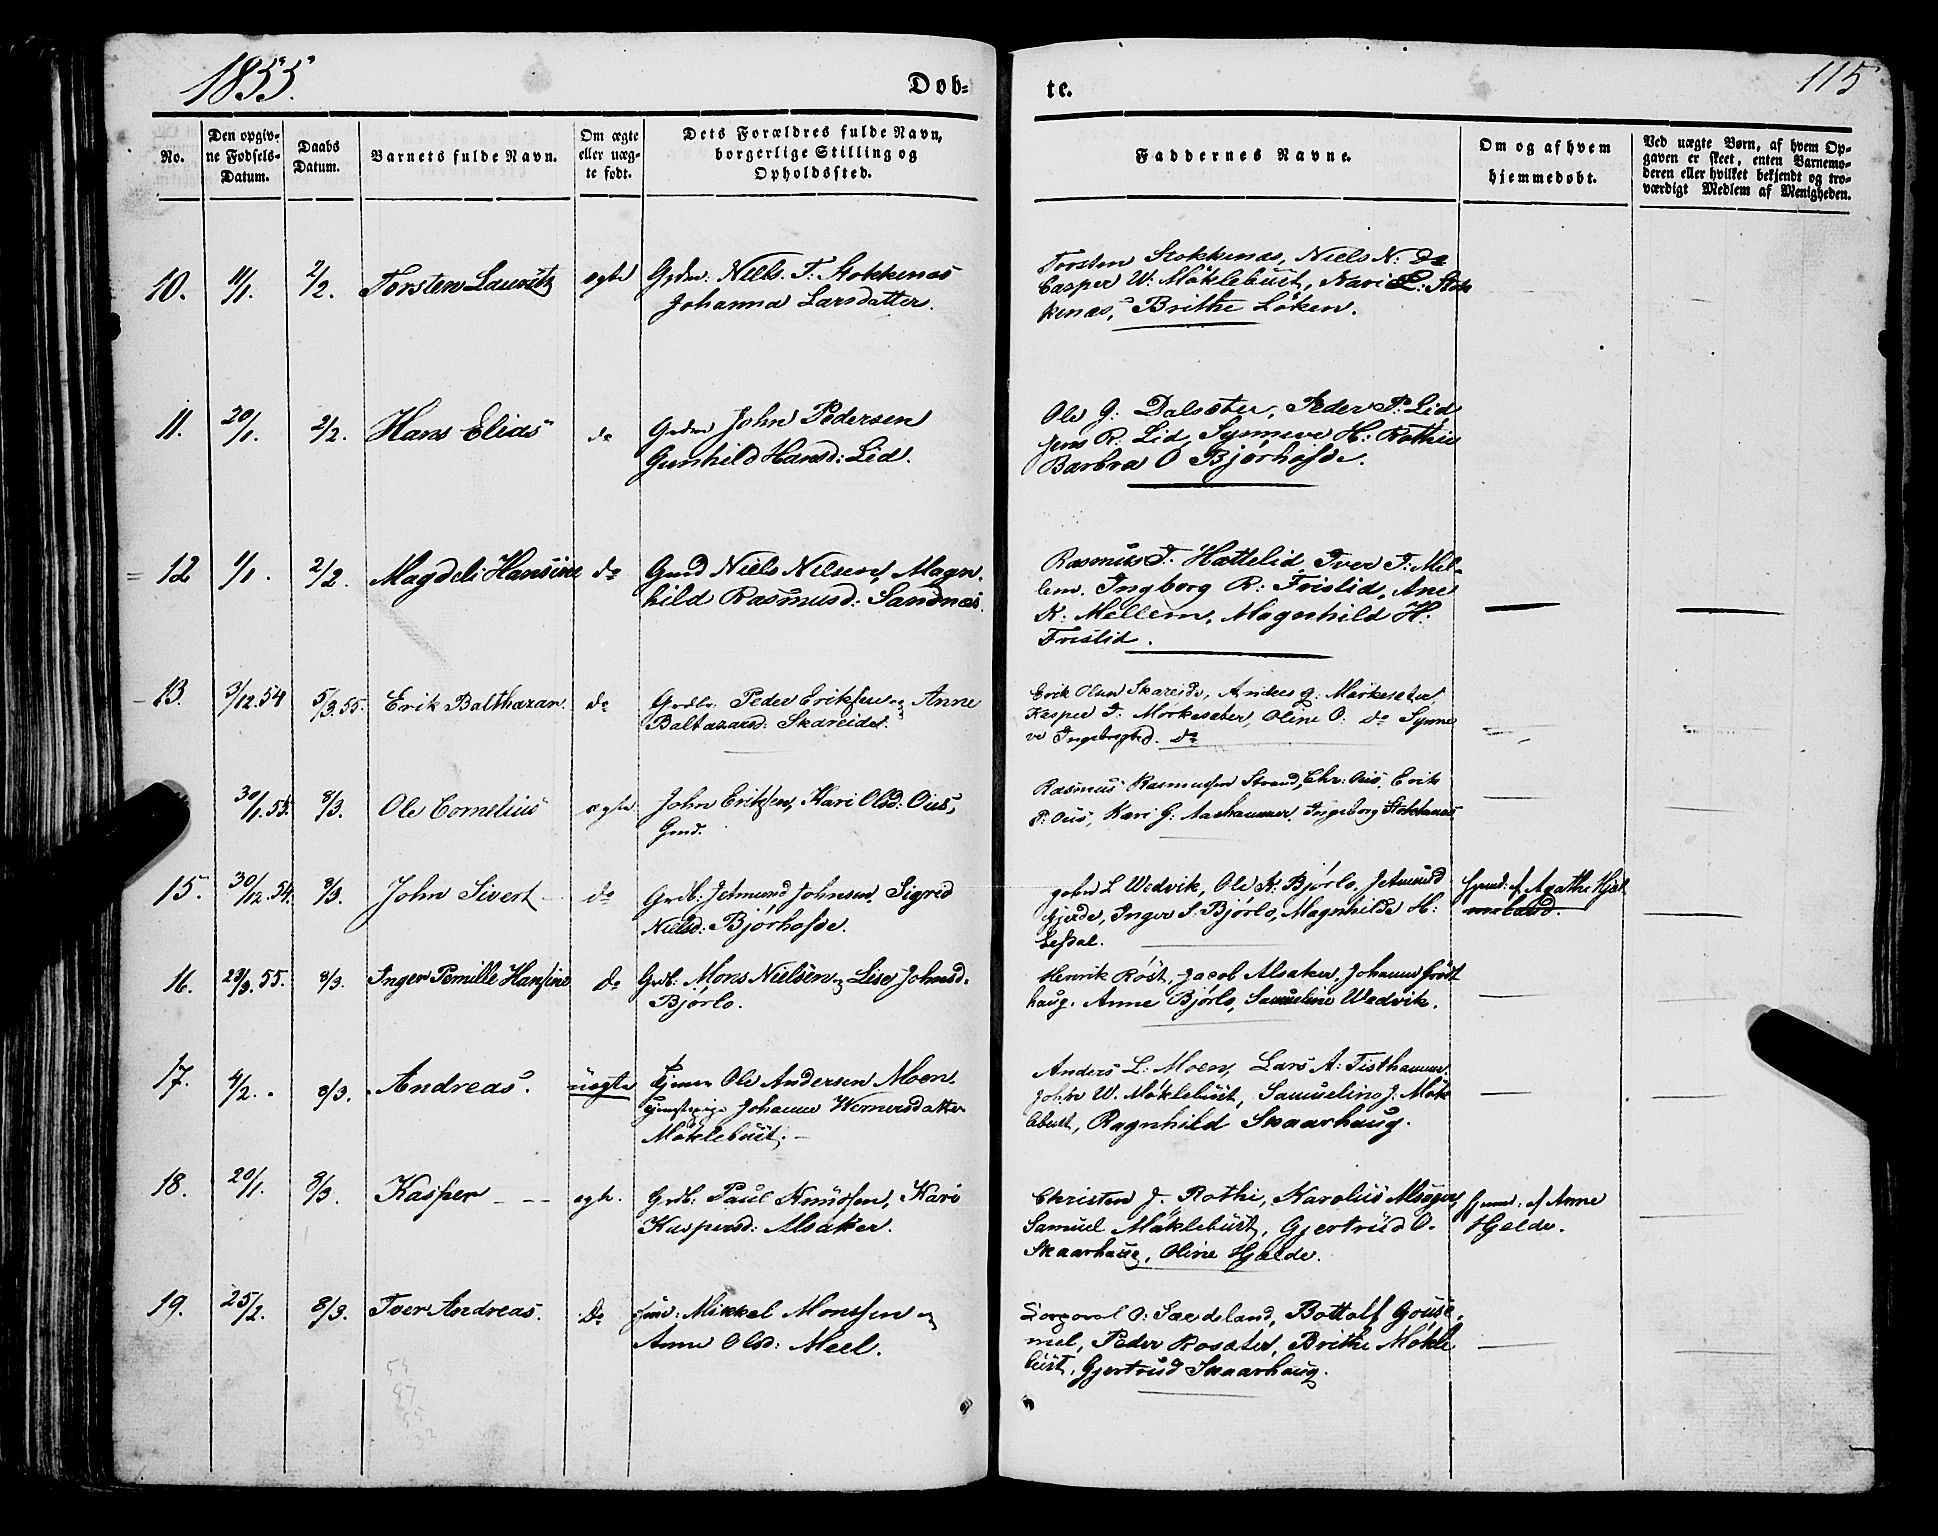 1855.
Døb-
te.
115
No.
Den opgiv-
ne Fødsels-
Datum.
Daabs
Datum.
Barnets fulde Navn.
Om ægte
eller uæg-
te født.
Dets Forældres fulde Navn,
borgerlige Stilling og
Opholdssted.
Faddernes Navne.
Om og af hvem
hjemmedøbt.
Ved uægte Børn, af hvem Op-
gaven er skeet, enten Barnemo-
deren eller hvilket bekjendt og tro-
værdigt Medlem af Menigheden.
10. 11/1. 2/2. Torsten Lauritz ægte Grdm. Niels T: Stokkenæs
Johanna Larsdatter.
Torsten Stokkenæs, Niels N: do
Casper W: Møklebust, Kari L: Stok
kenæs, Brithe Løken.
11. 20/1. 2/2. Hans Elias do John Pedersen
Gunhild Hansd: Lid.
Ole G: Dalsæter, Peder P: Lid
Jens R: Lid, Synneve H: Rothie
Barbra O Bjørhofde.
12 1/1. 2/2. Magdeli Hansine do Gmd Niels Nilsen, Magn-
hild Rasmusd: Sandnæs.
Rasmus T. Hattelid, Iver I: Mel-
lem. Ingborg R: Fristid, Ane
K: Mellem, Magnhild H:
Fristid.
13. 3/12.54 5/3.55. Erik Balthazar. do Grdbr. Peder Eriksen og Anne
Baltazarsd: Skareidet.
Erik Olsen Skareide, Anders G: Mørkesæter
Kasper I: Mørkesæter, Oline O: do Synne
ve Ingebrigtsd. do
30/1.55. 8/3. Ole Cornelius ægte John Eriksen, Kari Olsd: Ous,
Gmd.
Rasmus Rasmussen Strand, Chr: Ous, Erik
P: Ous, Kari G: Aashammer, Ingeborg Stokkenæs
15. 30/12.54. 8/3. John Sivert do Grdb: Jetmund Johnsen, Sigrid
Nielsd: Bjørhofde.
John L Wedvik, Ole A: Bjørlo, Jetmund
Gjerde, Inger S: Bjørlo, Magnhilde H:
Lefsal.
hjemd: af Agathe Hjel
meland.
16. 23/2.55. 8/3. Inger Pernille Hansine do Grdb: Mons Nielsen og Lise Johnsd.
Bjørlo.
Henrik Røst, Jacob Alsaker, Johannes Grøst
haug. Anne Bjørlo, Samueline Wedvik.
17. 4/2. 8/3. Andreas. uægte Tjener Ole Andersen Moen.
Tjenstepige Johanne Wernersdatter
Møklebust.
Anders L: Moen, Lars A: Tisthammer
John W. Møklebust, Samueline J. Møk
lebust, Ragnhild Skaarhaug.
18. 20/1. 8/3. Kasper ægte. Grdb: Paul Knudsen, Kari
Kaspersd: Alsaker.
Christen J. Rothi, Karolus Alsager,
Samuel Møklebust, Gjertrud O.
Skaarhaug, Oline Hjelde.
hjemd: af Anne
Hjelde.
19. 25/2. 8/3. Iver Andreas. Do Mikkel Monssen og
Anne Olsd: Meel.
O: Sædeland, Bottolf Gouse-
mel, Peder Rosæter, Brithe Møkle
bust, Gjertrud Skaarhaug.